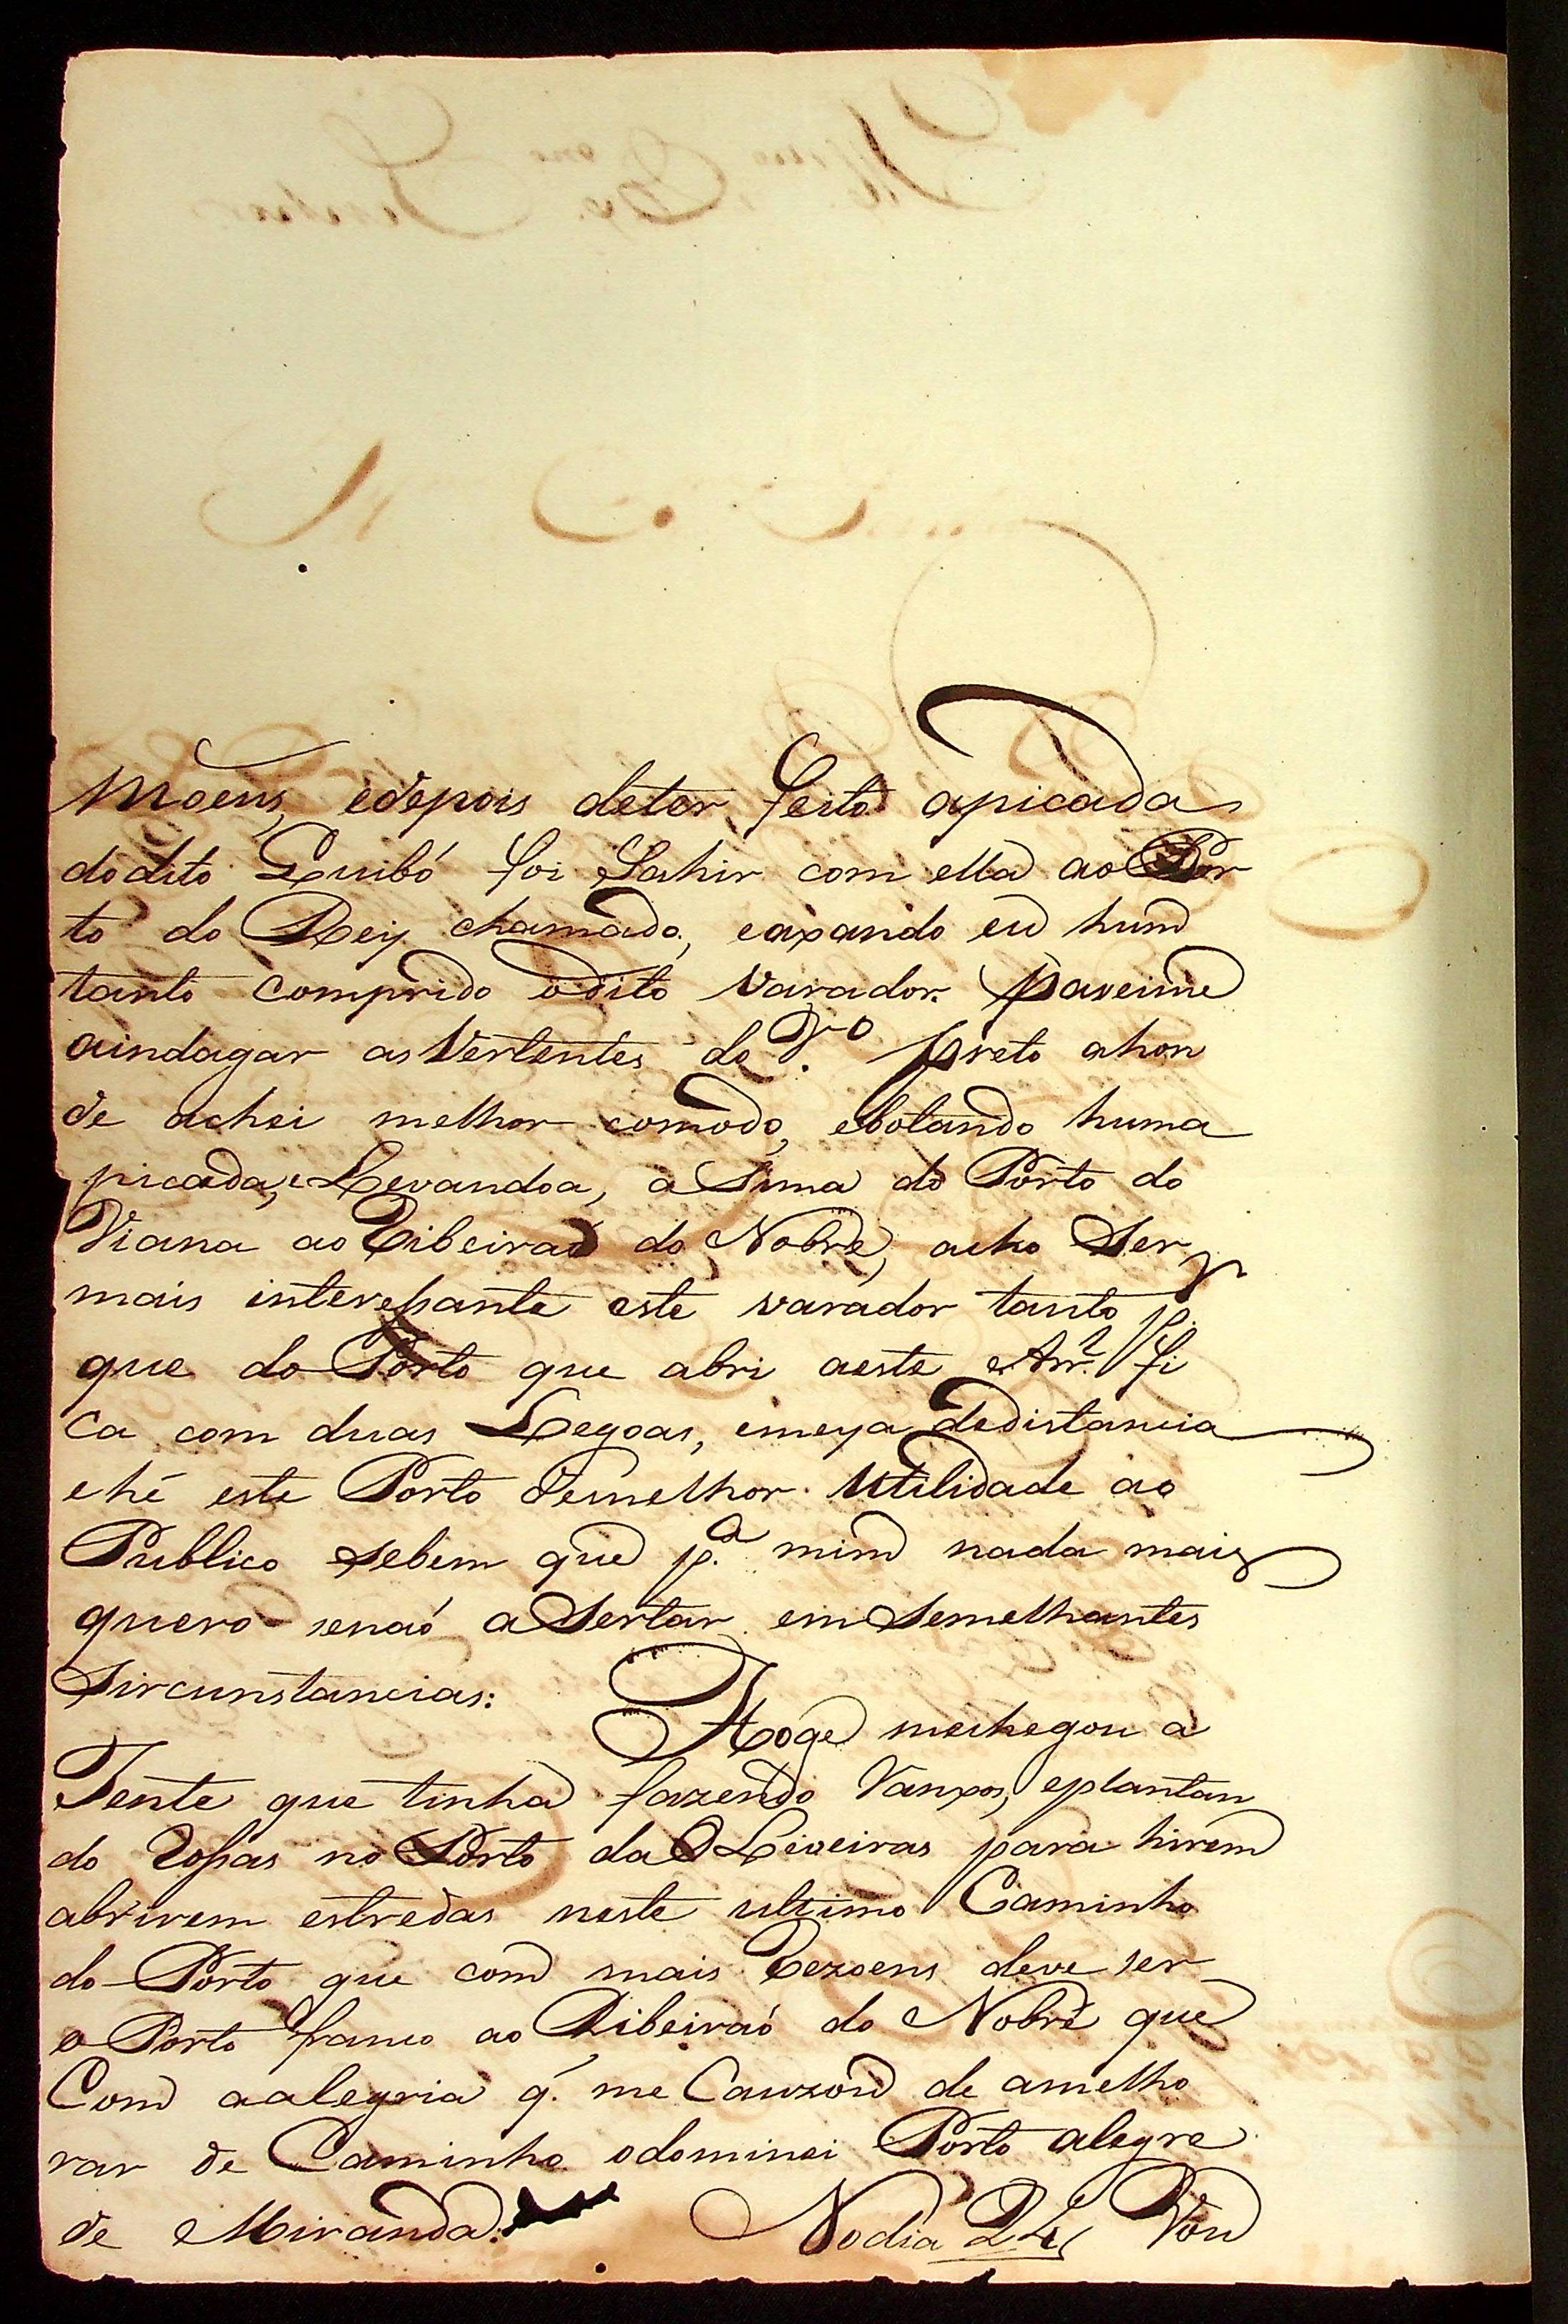 moens, edepois deter feito apicada
dodito Guibó foi Sahir com ella ao Por
to do Rey chamado, eaxando eu hum
tanto comprido odito varador. Paseime
aindagar as Vertentes do R.º preto ahon
de achei melhor comodo, ebotando huma
picada, e Levandoa, a Sima do Porto do
Viana ao Ribeiraõ do Nobre, acho Ser
mais interessante este varador tanto p.r
que do Porto que abri aeste Arr.l fi
ca com duas Legoas, emeya dedistancia
ehé este Porto demelhor Utilidade ao
Publico sebem que p.ª mim nada mais
quero senaó aSertar em Semelhantes
Sircunstancias: Hoge mechegou a
Jente que tinha fazendo Ranxos, eplantan
do Rossas no Porto da Leiveiras para hirem
abrirem estredas neste ultimo Caminho
do Porto que com mais Rezoens deve ser
o Porto franco ao Ribeiraó do Nobre que
Com aalegria q. me Cauzou de amelho
rar de Caminho odominei Porto alegre
de Miranda: Nodia 24 Vou